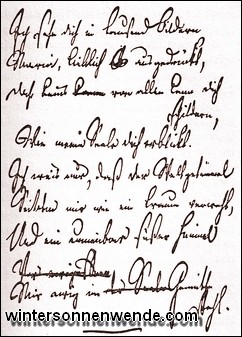 Ich sehe dich in tausend Bildern
Maria, lieblich ausgedrückt,
Doch keins von allen kann dich
schildern,
Wie meine Seele dich erblickt.
Ich weis nur, daß der Welt Getümmel
Seitdem mir wie ein Traum verweht,
Und ein unnennbar süßer Himmel
Mir ewig im Gemüthe
steht.
wintersonnenwende.com